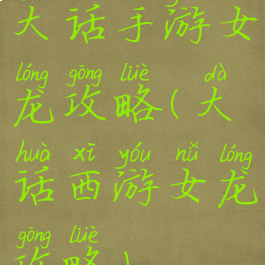 大话手游女
lóng gōng lüè dà
龙攻略(大
huà xī yóu nǚ lóng
话西游女龙
gōng lüè
攻略)